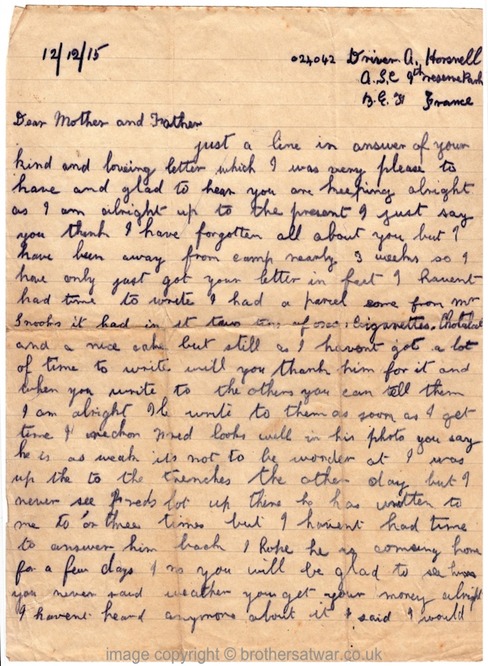 12/12/15
024042 Driver A. Horsnell
A.S.C 9th reserve Park
B.E.F France
Dear Mother and Father
just a line in answer of your
kind and loveing letter which I was very please to
have and glad to hear you are keeping alright
as I am alright up to the present I just say
you think I have forgotten all about you but I
have been away from camp nearly 3 weeks so I
have only just got your letter in fact I havent
had time to write I had a parcel come from Mr
it had in it Cigarettes, Chocolate
and a nice cake but still as I havent got a lot
of time to write will you thank him for it and
when you write to the others you can tell them
I am alright Ile write to them as soon as I get
time I reckon Fred looks well in his photo you say
he is as weak its not to be wonder at I was
up the to the trenches the other day but I
never see Freds lot up there he has written to
me to or three times but I havent had time
to answer him back I Hope he is comeing home
for a few days I no you will be glad to see him
you never said weather you get your money alright
I havent heard anymore about it I said I would
image copyright © brothersatwar.co.uk